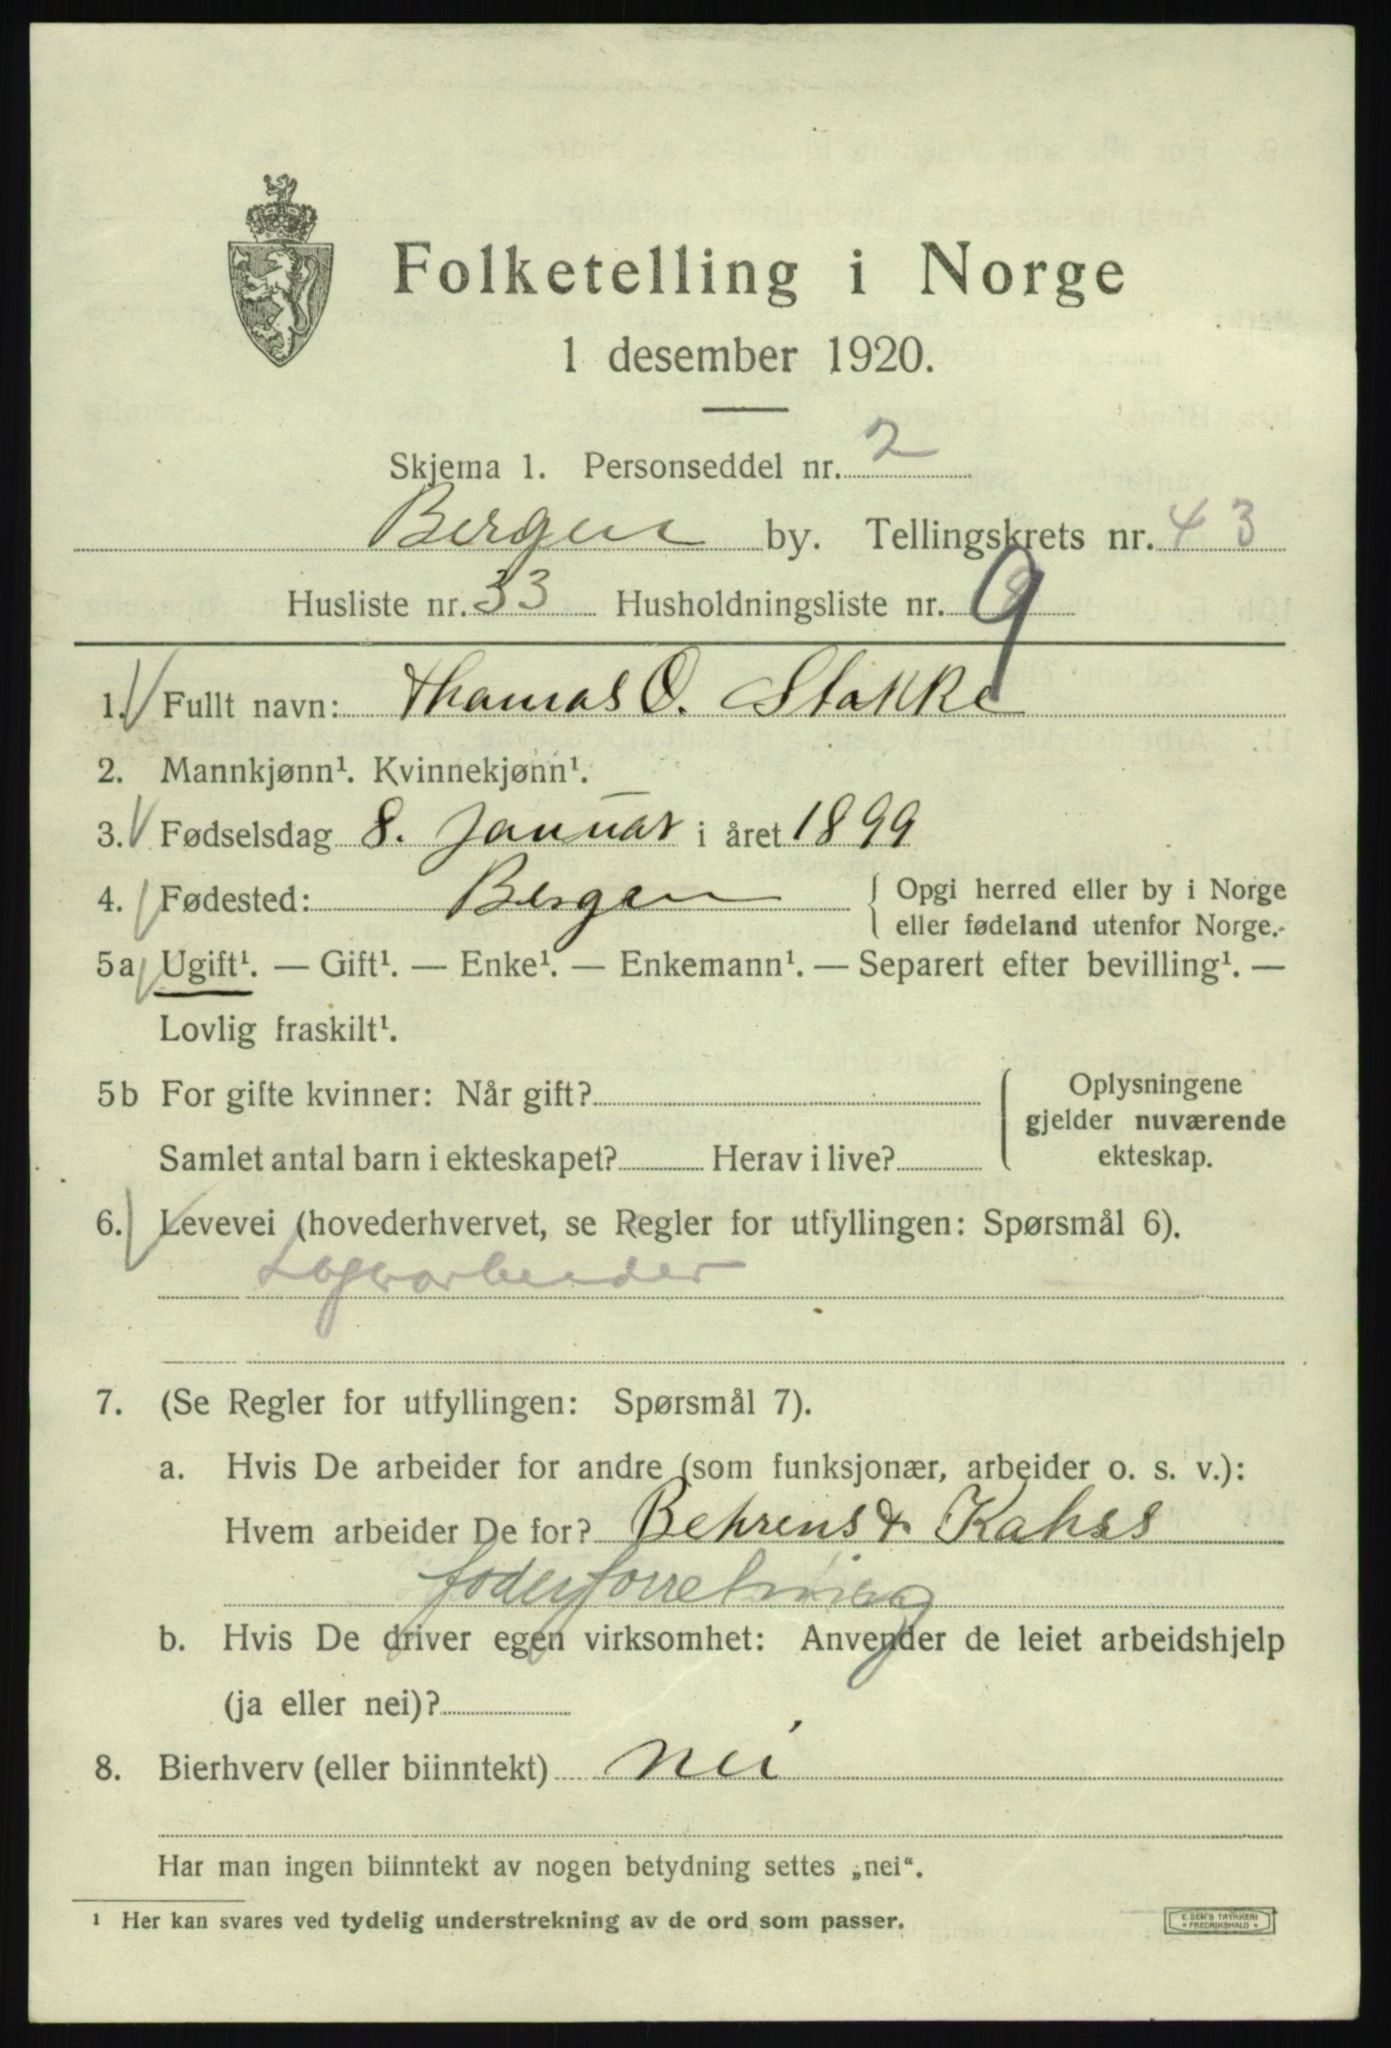 Folketelling i Norge
1 desember 1920.
Skjema 1. Personseddel nr. 2
Bergen by. Tellingskrets nr. 43
Husliste nr. 33 Husholdningsliste nr. 9
1. Fullt navn: Thomas O. Stokke
2. Mannkjønn¹. Kvinnekjønn¹.
3. Fødselsdag 8. Januar i året 1899
4. Fødested: Bergen { Opgi herred eller by i Norge
eller fødeland utenfor Norge.
5a Ugift¹. — Gift¹. — Enke¹. — Enkemann¹. — Separert efter bevilling¹. —
Lovlig fraskilt¹.
5b For gifte kvinner: Når gift? { Oplysningene
gjelder nuværende
Samlet antal barn i ekteskapet? Herav i live? ekteskap.
6. Levevei (hovederhvervet, se Regler for utfyllingen: Spørsmål 6).
Lagerarbeider
7. (Se Regler for utfyllingen: Spørsmål 7).
a. Hvis De arbeider for andre (som funksjonær, arbeider o. s. v.):
Hvem arbeider De for? Behrens &
foderforretning
b. Hvis De driver egen virksomhet: Anvender de leiet arbeidshjelp
(ja eller nei)?
8. Bierhverv (eller biinntekt) nei
Har man ingen biinntekt av nogen betydning settes „nei“.
¹ Her kan svares ved tydelig understrekning av de ord som passer.
E. SEM'S TRYKKERI
FREDRIKSHALD